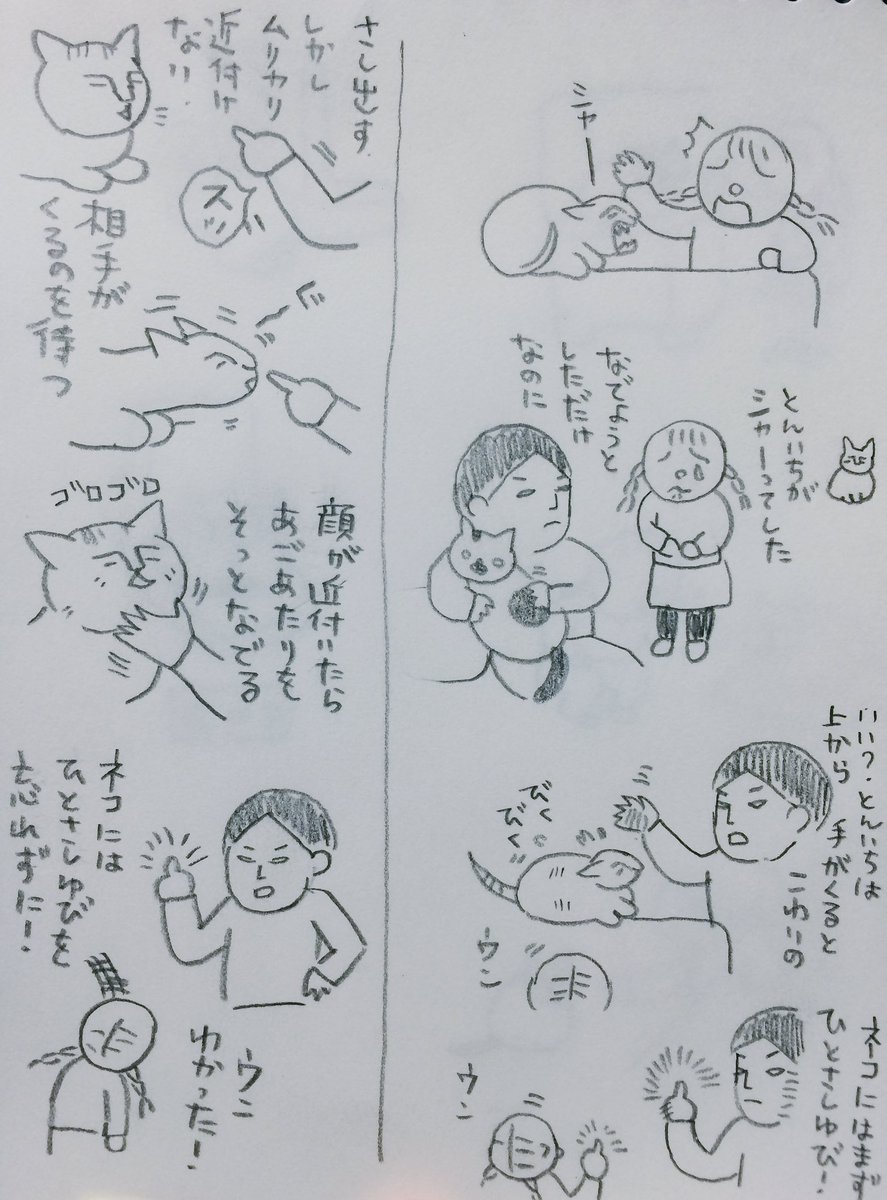 シャー
とんいちが
シャーってした
なでようと
しただけ
なのに
いい？とんいちは
上から 手がくると
こわいの
びくびく
ウン
ネコにはまず
ひとさしゆび！
ウン
さし出す
しかし
ムリヤリ
近付け
ない．
スッ
相手が
くるのを待つ
顔が近付いたら
あごあたりを
そっとなでる
ゴロゴロ
ネコには
ひとさしゆびを
忘れずに！
ウン
わかった！